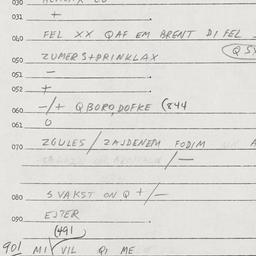 030
031 +
040 FEL XX QAF EM BRENT DI FEL
050 ZUMERS+PRINKLAX
051 —
052 +
060 —/+ QBORODOFKE (844
061 O
070 ZGULES / ZAJDENEM FODIM A
/—
080 SVAKST ON Q +/—
090 EJTER
(491
901 MI VIL QI ME